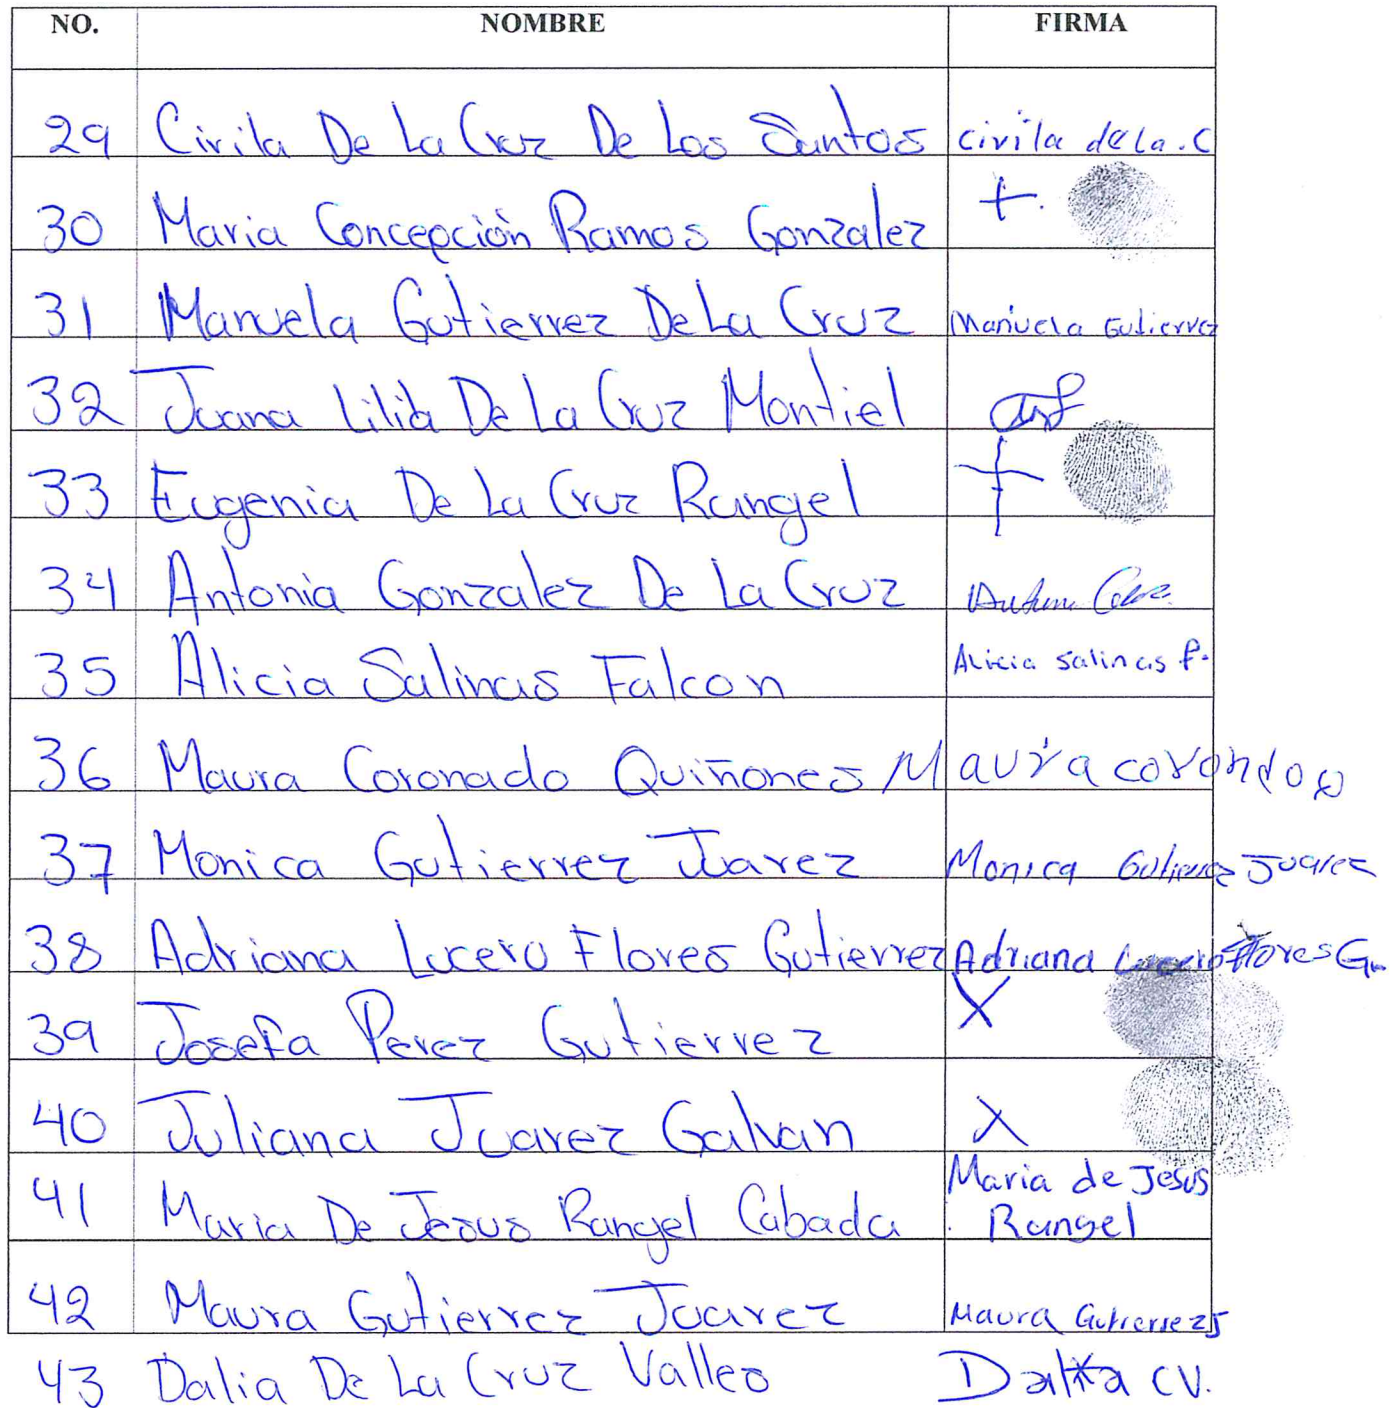 NO. NOMBRE FIRMA
29 Civila De La Cruz De Los Santos civila de la . C
30 Maria Concepción Ramos Gonzalez +.
31 Manuela Gutierrez De La Cruz Manuela Gutierrez
32 Juana Lilia De La Cruz Montiel
33 Eugenia De La Cruz Rangel +
34 Antonia Gonzalez De La Cruz
35 Alicia Salinas Falcon Alicia Salinas f.
36 Maura Coronado Quiñones Maura corondo
37 Monica Gutierrez Juarez Monica Gutierrez Juarez
38 Adriana Lucero Flores Gutierrez Adriana Lucero Flores G.
39 Josefa Perez Gutierrez X
40 Juliana Juarez Galvan X
41 Maria De Jesus Rangel Cabada Maria de Jesus
Rangel
42 Maura Gutierrez Juarez Maura Gutierrez J
43 Dalia De La Cruz Valles Dalia CV.